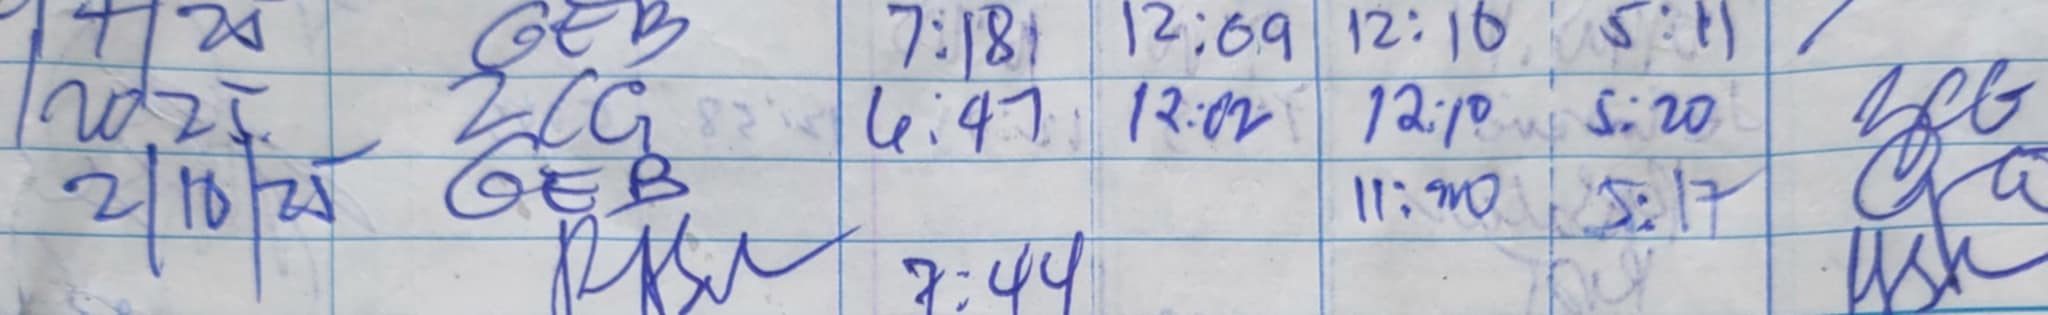 4/25 GEB 7:18 12:09 12:10 5:11
2025 ZCG 6:47 12:02 12:10 5:20 ZCG
2/10/25 GEB 11:20 5:17
7:44